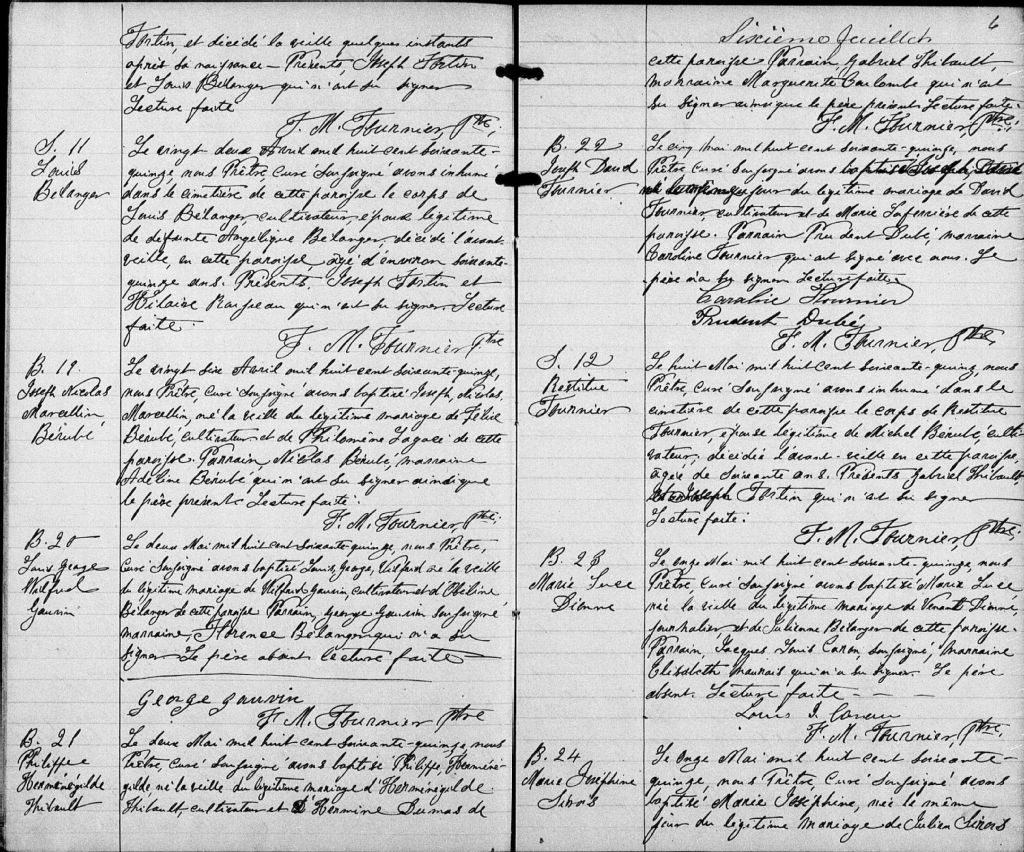 Fortin, et décédé la veille quelques instants
après sa naissance – Présents, Joseph Fortin
et Louis Bélanger qui n'ont su signer
Lecture faite
F. M. Fournier Ptre.
S. 11
Louis
Bélanger
Le vingt deux Avril mil huit cent soixante-
quinze nous Prêtre Curé Soussigné avons inhumé
dans le cimetière de cette paroisse le corps de
Louis Bélanger cultivateur, époux légitime
de defunte Angélique Bélanger, décédé l'avant
veille, en cette paroisse, agé d'environ soixante-
quinze ans. Présents, Joseph Fortin et
Hilaire qui n'ont su signer Lecture
faite.
F. M. Fournier Ptre
B. 19.
Joseph Nicolas
Marcellin
Bérubé
Le vingt six Avril mil huit cent soixante-quinze,
nous Prêtre Curé Soussigné avons baptisé Joseph, Nicolas,
Marcellin, né la veille du légitime mariage de Félix
Bérubé, cultivateur et de Philomène Lagacé de cette
paroisse. Parrain, Nicolas Bérubé, marraine
Adéline Bérubé qui n'ont su signer ainsi que
le père présent Lecture faite.
F. M. Fournier Ptre.
B. 20
Louis George
Wilfrid
Gauvin
Le deux Mai mil huit cent soixante-quinze, nous Prêtre,
Curé Soussigné avons baptisé Louis, George, Wilfrid né la veille
du légitime mariage de Wilfrid Gauvin, cultivateur et d'
Bélanger de cette paroisse Parrain, George Gauvin soussigné
marraine, Florence Bélanger qui n'a su
signer Le père absent Lecture faite
George Gauvin
F. M. Fournier Ptre
B. 21
Philippe
Herménégilde
Thibault
Le deux Mai mil huit cent soixante-quinze, nous
Prêtre, Curé Soussigné avons baptisé Philippe, Herméné-
gilde, né la veille du légitime mariage d'Herménégilde
Thibault, cultivateur et d'Hermine Dumas de
6
Sixième feuillet
cette paroisse Parrain, Gabriel Thibault,
marraine Marguerite Coulombe qui n'ont
su signer ainsi que le père présent Lecture faite.
F. M. Fournier Ptre.
B. 22
Joseph David
Fournier
Le cinq Mai mil huit cent soixante-quinze, nous
Prêtre Curé Soussigné avons baptisé Joseph, David
né jour du légitime mariage de David
Fournier cultivateur et de Marie Laferrière de cette
paroisse. Parrain Prudent Dubé, marraine
Caroline Fournier qui ont signé avec nous. Le
père n'a su signer Lecture faite
Caroline Fournier
Prudent Dubé
F. M. Fournier, Ptre.
S. 12
Restitue
Fournier
Le huit Mai mil huit cent soixante-quinz, nous
Prêtre Curé Soussigné avons inhumé dans le
cimetière de cette paroisse le corps de Restitue
Fournier, épouse légitime de Michel Bérubé, culti-
vateur, décédée l'avant-veille en cette paroisse,
agée de soixante ans. Présents Gabriel Thibault
et Joseph Fortin qui n'ont su signer
Lecture faite.
F. M. Fournier, Ptre.
B. 23
Marie Luce
Dionne
Le onze Mai mil huit cent soixante-quinze, nous
Prêtre, Curé Soussigné avons baptisé Marie Luce
née la veille du légitime mariage de Venant Dionne,
journalier et de Julienne Bélanger de cette paroisse.
Parrain, Jacques Louis Caron soussigné, marraine
Elisabeth Maurais qui n'a su signer. Le père
absent. Lecture faite –
Louis J. Caron
F. M. Fournier, Ptre.
B. 24
Marie Joséphine
Sirois
Le onze Mai mil huit cent soixante-
quinze, nous Prêtre Curé Soussigné avons
baptisé Marie Joséphine, née le même
jour du légitime mariage de Julien Sirois